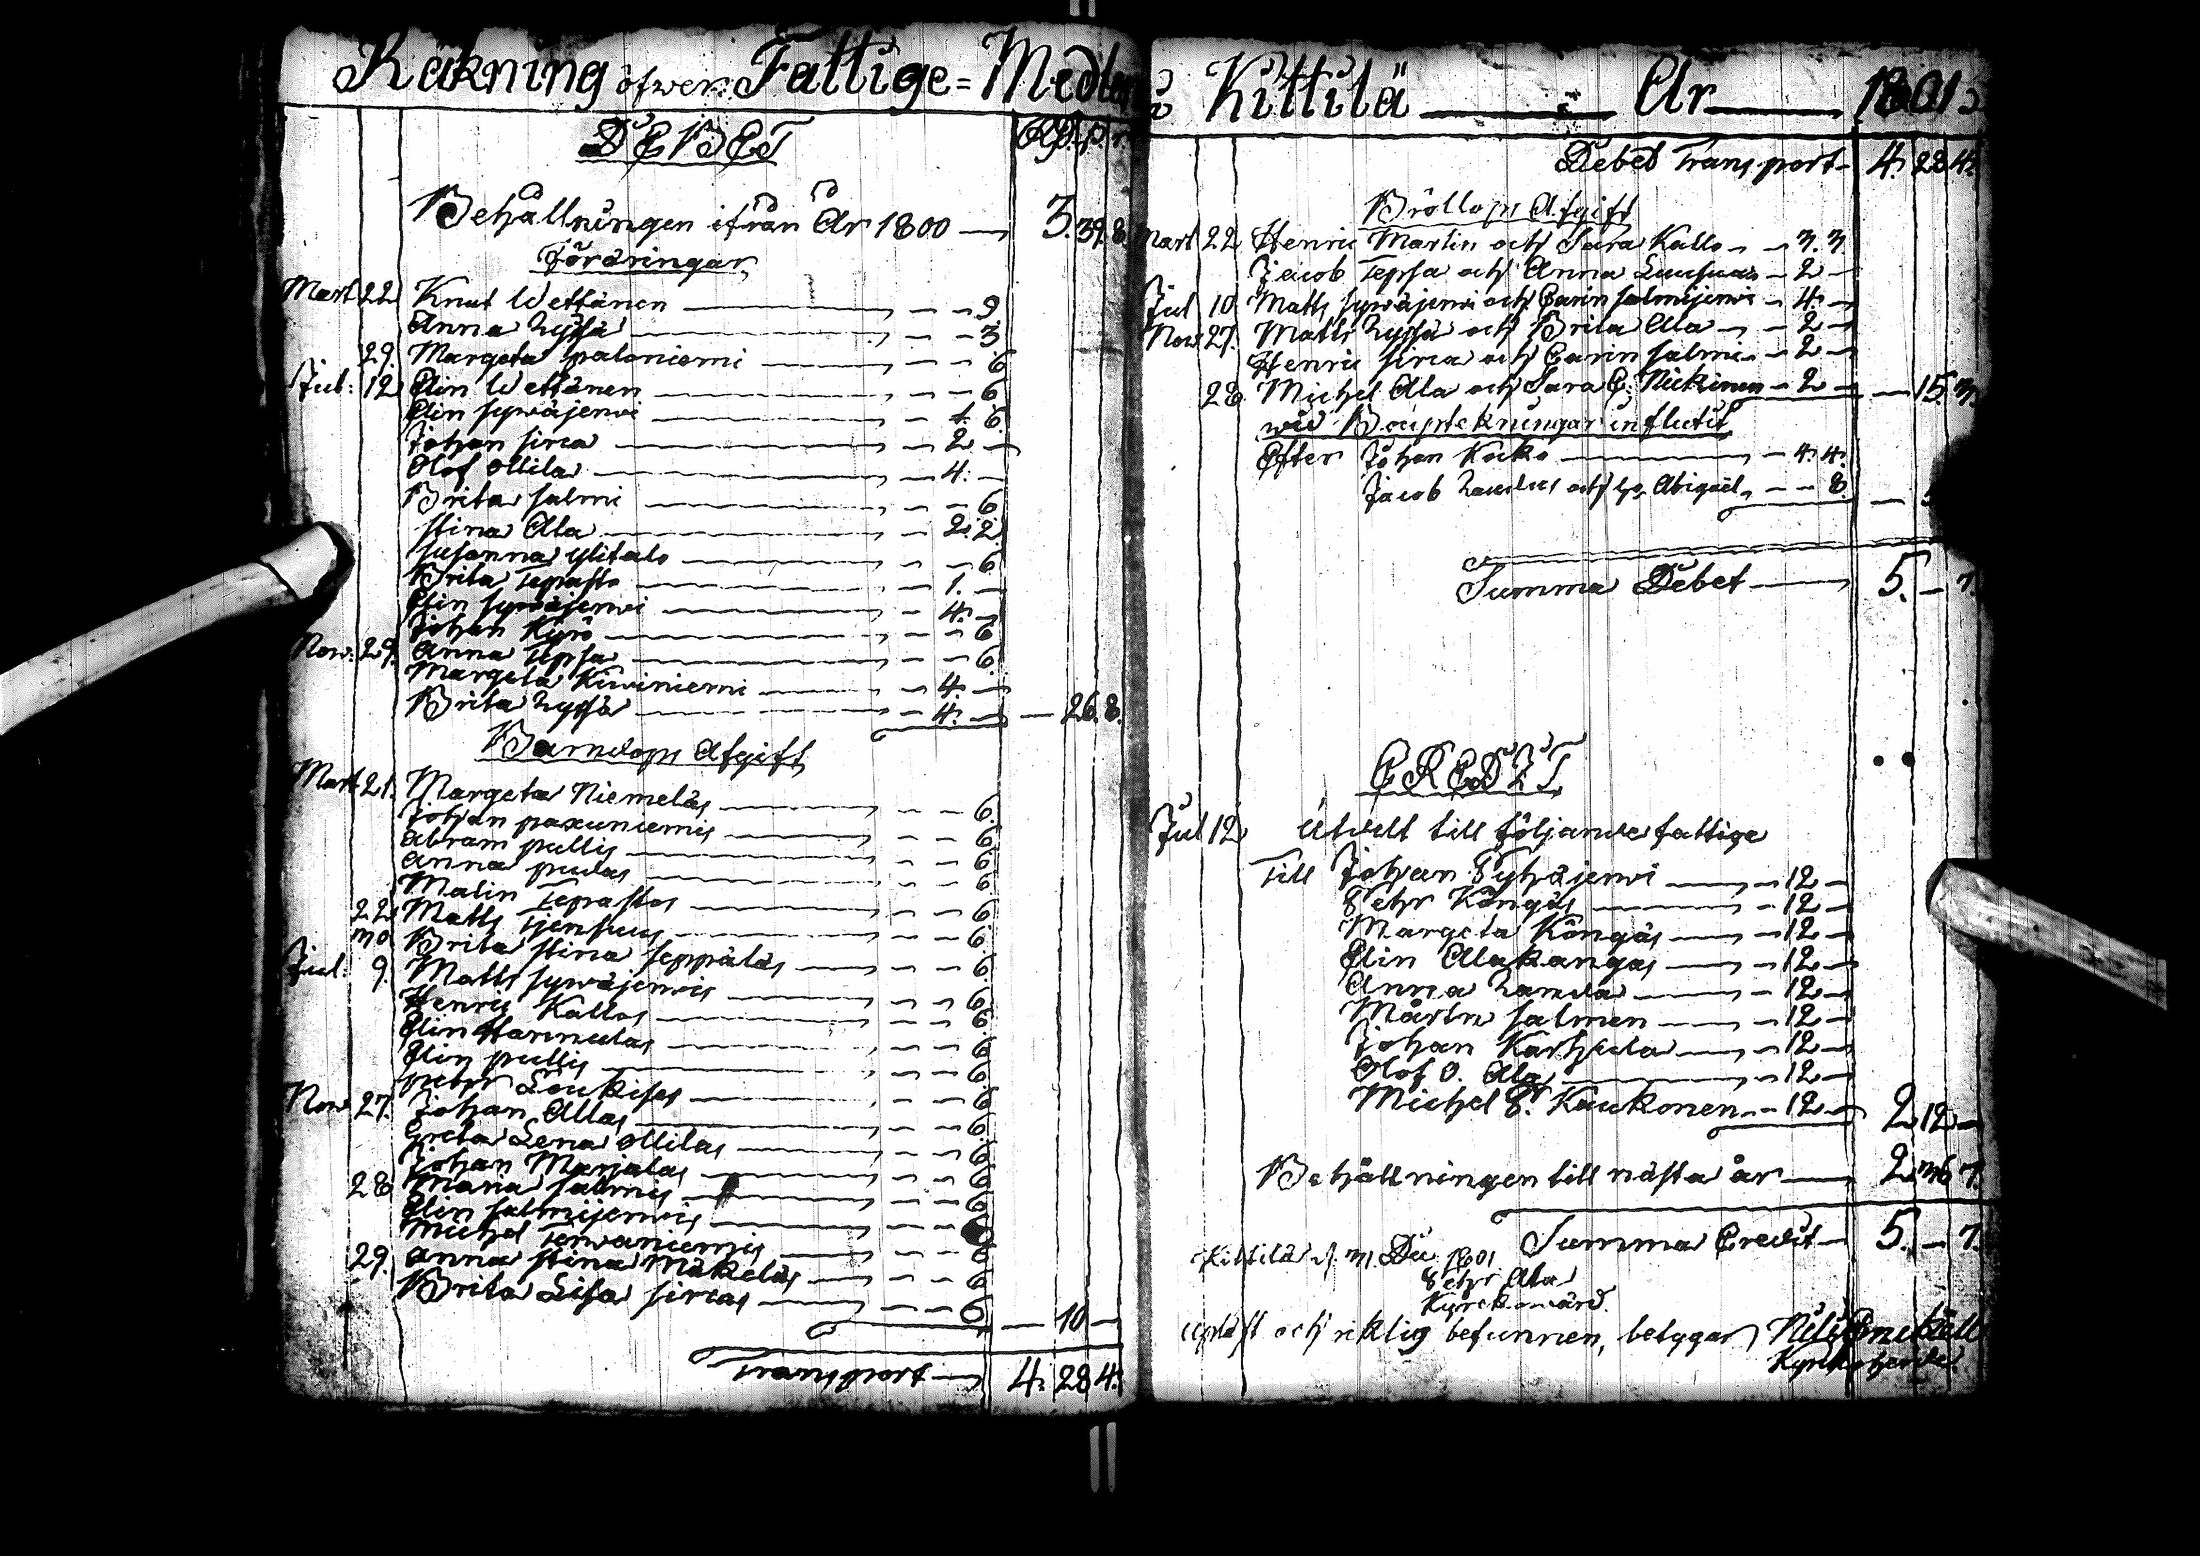 Räkning öfwer Fattige = Medlen
DEBET
Behållningen ifrån År 1800 — 3. 39. 8.
Föräringar
Mart 22 Knut Wettänen — 9
Anna Zyssä — 3
29. Margeta paloniemi — 6
Jul: 12 Elin Wettänen — 6
Elin sywäjerwi — 1. 6.
Johan sirca — 2 —
Olof ollila — 4. —
Brita salmi — 6
stina Ala — 2. 2.
susanna ylitalo — 6
Brita Tepasto — 1. —
Elin sywäjerwi — 4. —
Johan Kyrö — 6
Now. 29. Anna Tepsa — 6
Margeta Kiwiniemi — 4. —
Brita Zyssä — 4. — — 26. 8.
Barndops Afgift
Mart 21. Margeta Niemeläs — 6.
Johan paxuniemis — 6
Abram pullis — 6
Anna pudas — 6
Malin Tepastos — 6
22 Matts — 6
Brita stina seppäläs — 6
Jul: 9. Matts sywäjerwis — 6
Henric Kallos — 6
Elin Hannulas — 6
Elin pullis — 6
petter Loukises — 6
Now 27. Johan Allas — 6
Greta Lena ollilas — 6
Johan Marjalas — 6
28 Maria salmis — 6
Elin salmijerwis — 6
Michel Terwaniemis — 6
29. Anna stina Mäkeläs — 6
Brita Lisa sircas — 6 — 10 —
Transport — 4. 28 4.
Kittilä — År — 1801
Debet Transport — 4. 28 4.
Bröllops Afgift
Mart 22 Henric Martin och Sara Kallo — 3. 3.
Jacob Tepsa och Anna — 2 —
Jul 10 Matts sywäjerwi och Carin salmijerwi — 4. —
Now 27. Matts Zyssä och Brita Ala — 2 —
Henric sirca och Carin salmi — 2 —
28 Michel Ala och Sara C: Nickinen — 2 — — 15. 3.
wid Boupteckningar influtit
Efter Johan Kuko — 4. 4.
Jacob och Abigael — 8.
Summa Debet — 5. — 7.
CREDIT
Jul 12 Utdelt till följande fattige
Till Johan Pyhäjerwi — 12 —
Pehr Köngäs — 12 —
Margeta Köngäs — 12 —
Elin Alakangas — 12 —
Anna — 12 —
Mårtin salmen — 12 —
Johan Karhula — 12 —
Olof O. Ala — 12 —
Michel P. Kaukonen — 12 — 2 12 —
Behållningen till nästa år — 2. 36 7.
Summa Credit — 5. — 7.
Kittilä d. 31 Dec 1801
Pehr Ala
Kyrckowärd.
Upläst och riktig befunnen, betygar Nils
Kyrckoherde